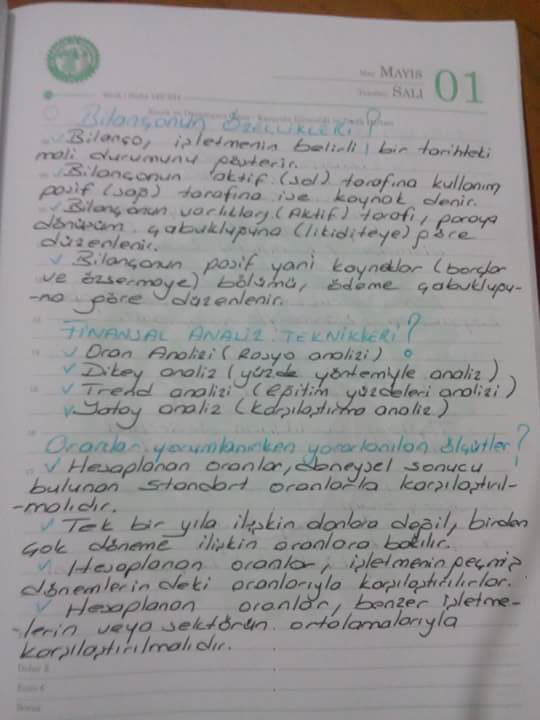 MAYIS
SALI
01
Bilançonun ÖZELLİKLERİ?
✓ Bilanço, işletmenin belirli bir tarihteki
mali durumunu gösterir.
✓ Bilançonun aktif (sol) tarafına kullanım
pasif (sağ) tarafına ise kaynak denir.
✓ Bilançonun varlıklar (Aktif) tarafı, paraya
dönüşüm çabukluğuna (likiditeye) göre
düzenlenir.
✓ Bilançonun pasif yani kaynaklar (borçlar
ve özsermaye) bölümü, ödeme çabukluğu-
-na göre düzenlenir.
FİNANSAL ANALİZ TEKNİKLERİ?
✓ Oran Analizi (Rasyo analizi)
✓ Dikey analiz (yüzde yöntemiyle analiz)
✓ Trend analizi (Eğitim yüzdeleri analizi)
✓ Yatay analiz (Karşılaştırma analiz)
Oranlar yorumlanırken yararlanılan ölçütler?
✓ Hesaplanan oranlar, deneysel sonucu
bulunan standart oranlarla karşılaştırıl-
-malıdır.
✓ Tek bir yıla ilişkin değil, birden
çok döneme ilişkin oranlara bakılır.
✓ Hesaplanan oranlar, işletmenin geçmiş
dönemlerindeki oranlarıyla karşılaştırılırlar.
✓ Hesaplanan oranlar, benzer işletme-
-lerin veya sektörün ortalamalarıyla
karşılaştırılmalıdır.